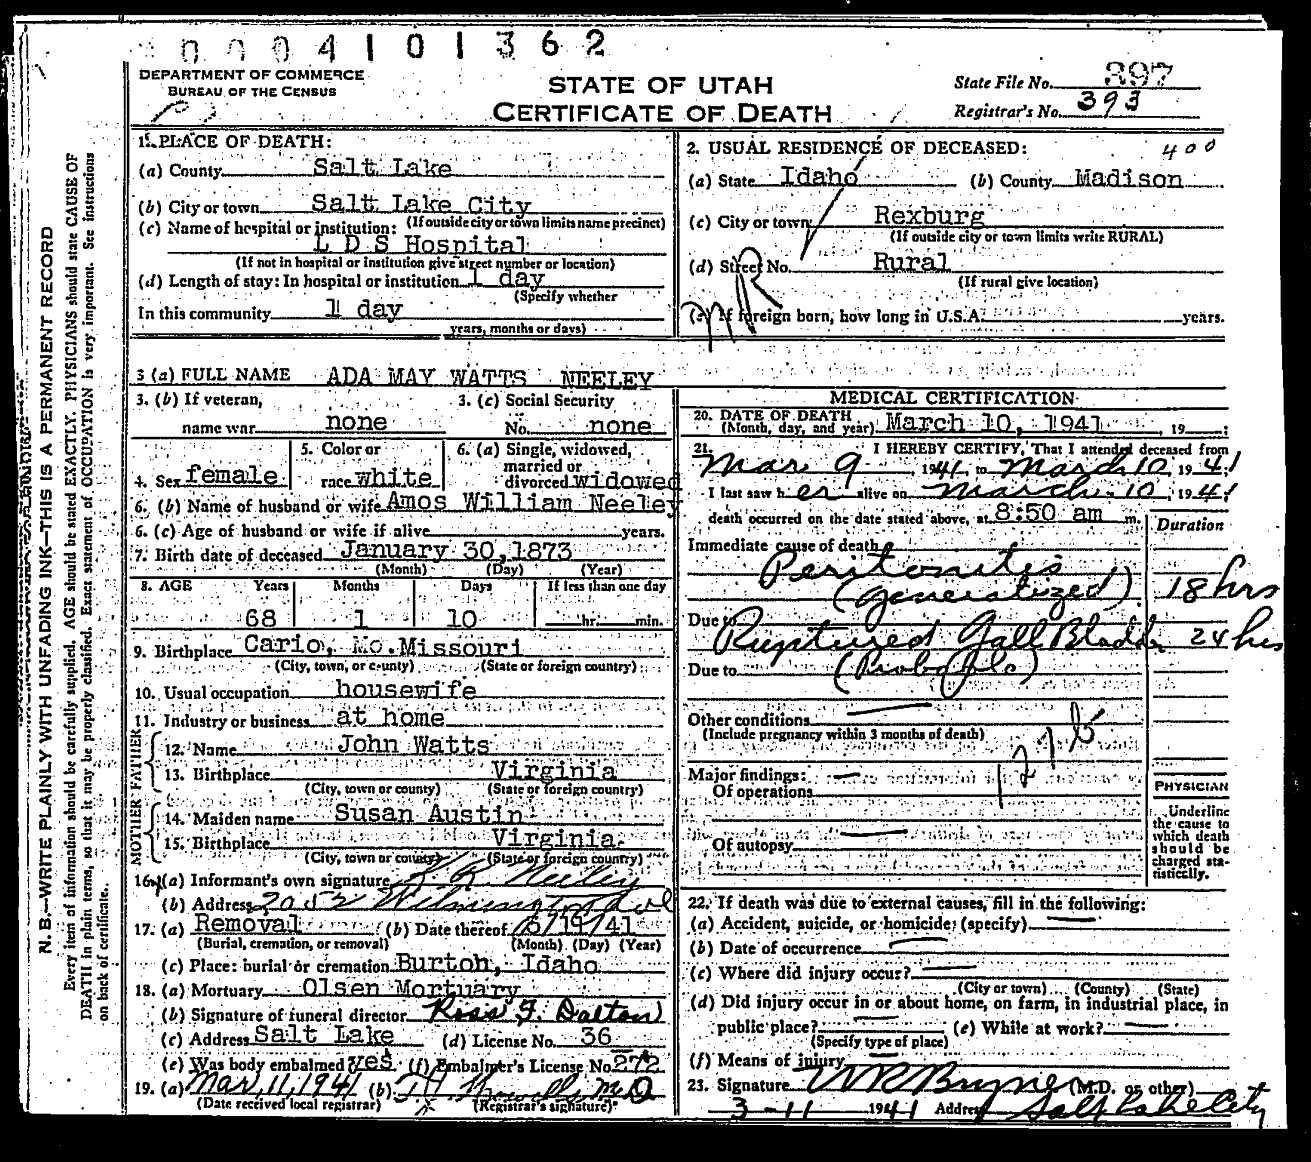 0004101362
DEPARTMENT OF COMMERCE
BUREAU OF THE CENSUS
STATE OF UTAH
CERTIFICATE OF DEATH
State File No. 397
Registrar's No. 393
1. PLACE OF DEATH:
(a) County Salt Lake
(b) City or town Salt Lake City
(If outside city or town limits name precinct)
(c) Name of hospital or institution:
L D S Hospital
(If not in hospital or institution give street number or location)
(d) Length of stay: In hospital or institution 1 day
(Specify whether
In this community 1 day
years, months or days)
2. USUAL RESIDENCE OF DECEASED: 400
(a) State Idaho (b) County Madison
(c) City or town Rexburg
(If outside city or town limits write RURAL)
(d) Street No. Rural
(If rural give location)
NR
(e) If foreign born, how long in U.S.A. years.
3 (a) FULL NAME ADA MAY WATTS NEELEY
3. (b) If veteran,
name war none
3. (c) Social Security
No. none
4. Sex female
5. Color or
race white
6. (a) Single, widowed,
married or
divorced widowed
6. (b) Name of husband or wife Amos William Neeley
6. (c) Age of husband or wife if alive years.
7. Birth date of deceased January 30, 1873
(Month) (Day) (Year)
8. AGE Years Months Days If less than one day
68 1 10 hr. min.
9. Birthplace Cario, Mo. Missouri
(City, town, or county) (State or foreign country)
10. Usual occupation housewife
11. Industry or business at home
FATHER
12. Name John Watts
13. Birthplace Virginia
(City, town or county) (State or foreign country)
MOTHER
14. Maiden name Susan Austin
15. Birthplace Virginia.
(City, town or county) (State or foreign country)
16. (a) Informant's own signature Neeley
(b) Address 2052
17. (a) Removal (b) Date thereof /41
(Burial, cremation, or removal) (Month) (Day) (Year)
(c) Place: burial or cremation Burton, Idaho
18. (a) Mortuary Olsen Mortuary
(b) Signature of funeral director Ross J. Dalton
(c) Address Salt Lake (d) License No. 36
(e) Was body embalmed yes (f) Embalmer's License No. 272
19. (a) Mar, 11, 1941 (b) M.D
(Date received local registrar) (Registrar's signature)
MEDICAL CERTIFICATION
20. DATE OF DEATH
(Month, day, and year) March 10, 1941, 19 ;
21. I HEREBY CERTIFY, That I attended deceased from
Mar. 9 1941, to March 10 1941
I last saw her alive on March 10, 1941
death occurred on the date stated above, at 8:50 am m.
Duration
Immediate cause of death
Peritonitis
(generalized) 18 hrs
Due to Ruptured Gall Bladder 24 hrs
Due to (Probable)
Other conditions
(Include pregnancy within 3 months of death)
127b
Major findings:
Of operations
Of autopsy
PHYSICIAN
Underline
the cause to
which death
should be
charged sta-
tistically.
22. If death was due to external causes, fill in the following:
(a) Accident, suicide, or homicide (specify)
(b) Date of occurrence
(c) Where did injury occur?
(City or town) (County) (State)
(d) Did injury occur in or about home, on farm, in industrial place, in
public place? (e) While at work?
(Specify type of place)
(f) Means of injury
23. Signature (M.D. or other)
3-11 1941 Address Salt Lake City
N. B.—WRITE PLAINLY WITH UNFADING INK—THIS IS A PERMANENT RECORD
Every item of information should be carefully supplied. AGE should be stated EXACTLY. PHYSICIANS should state CAUSE OF
DEATH in plain terms, so that it may be properly classified. Exact statement of OCCUPATION is very important. See instructions
on back of certificate.